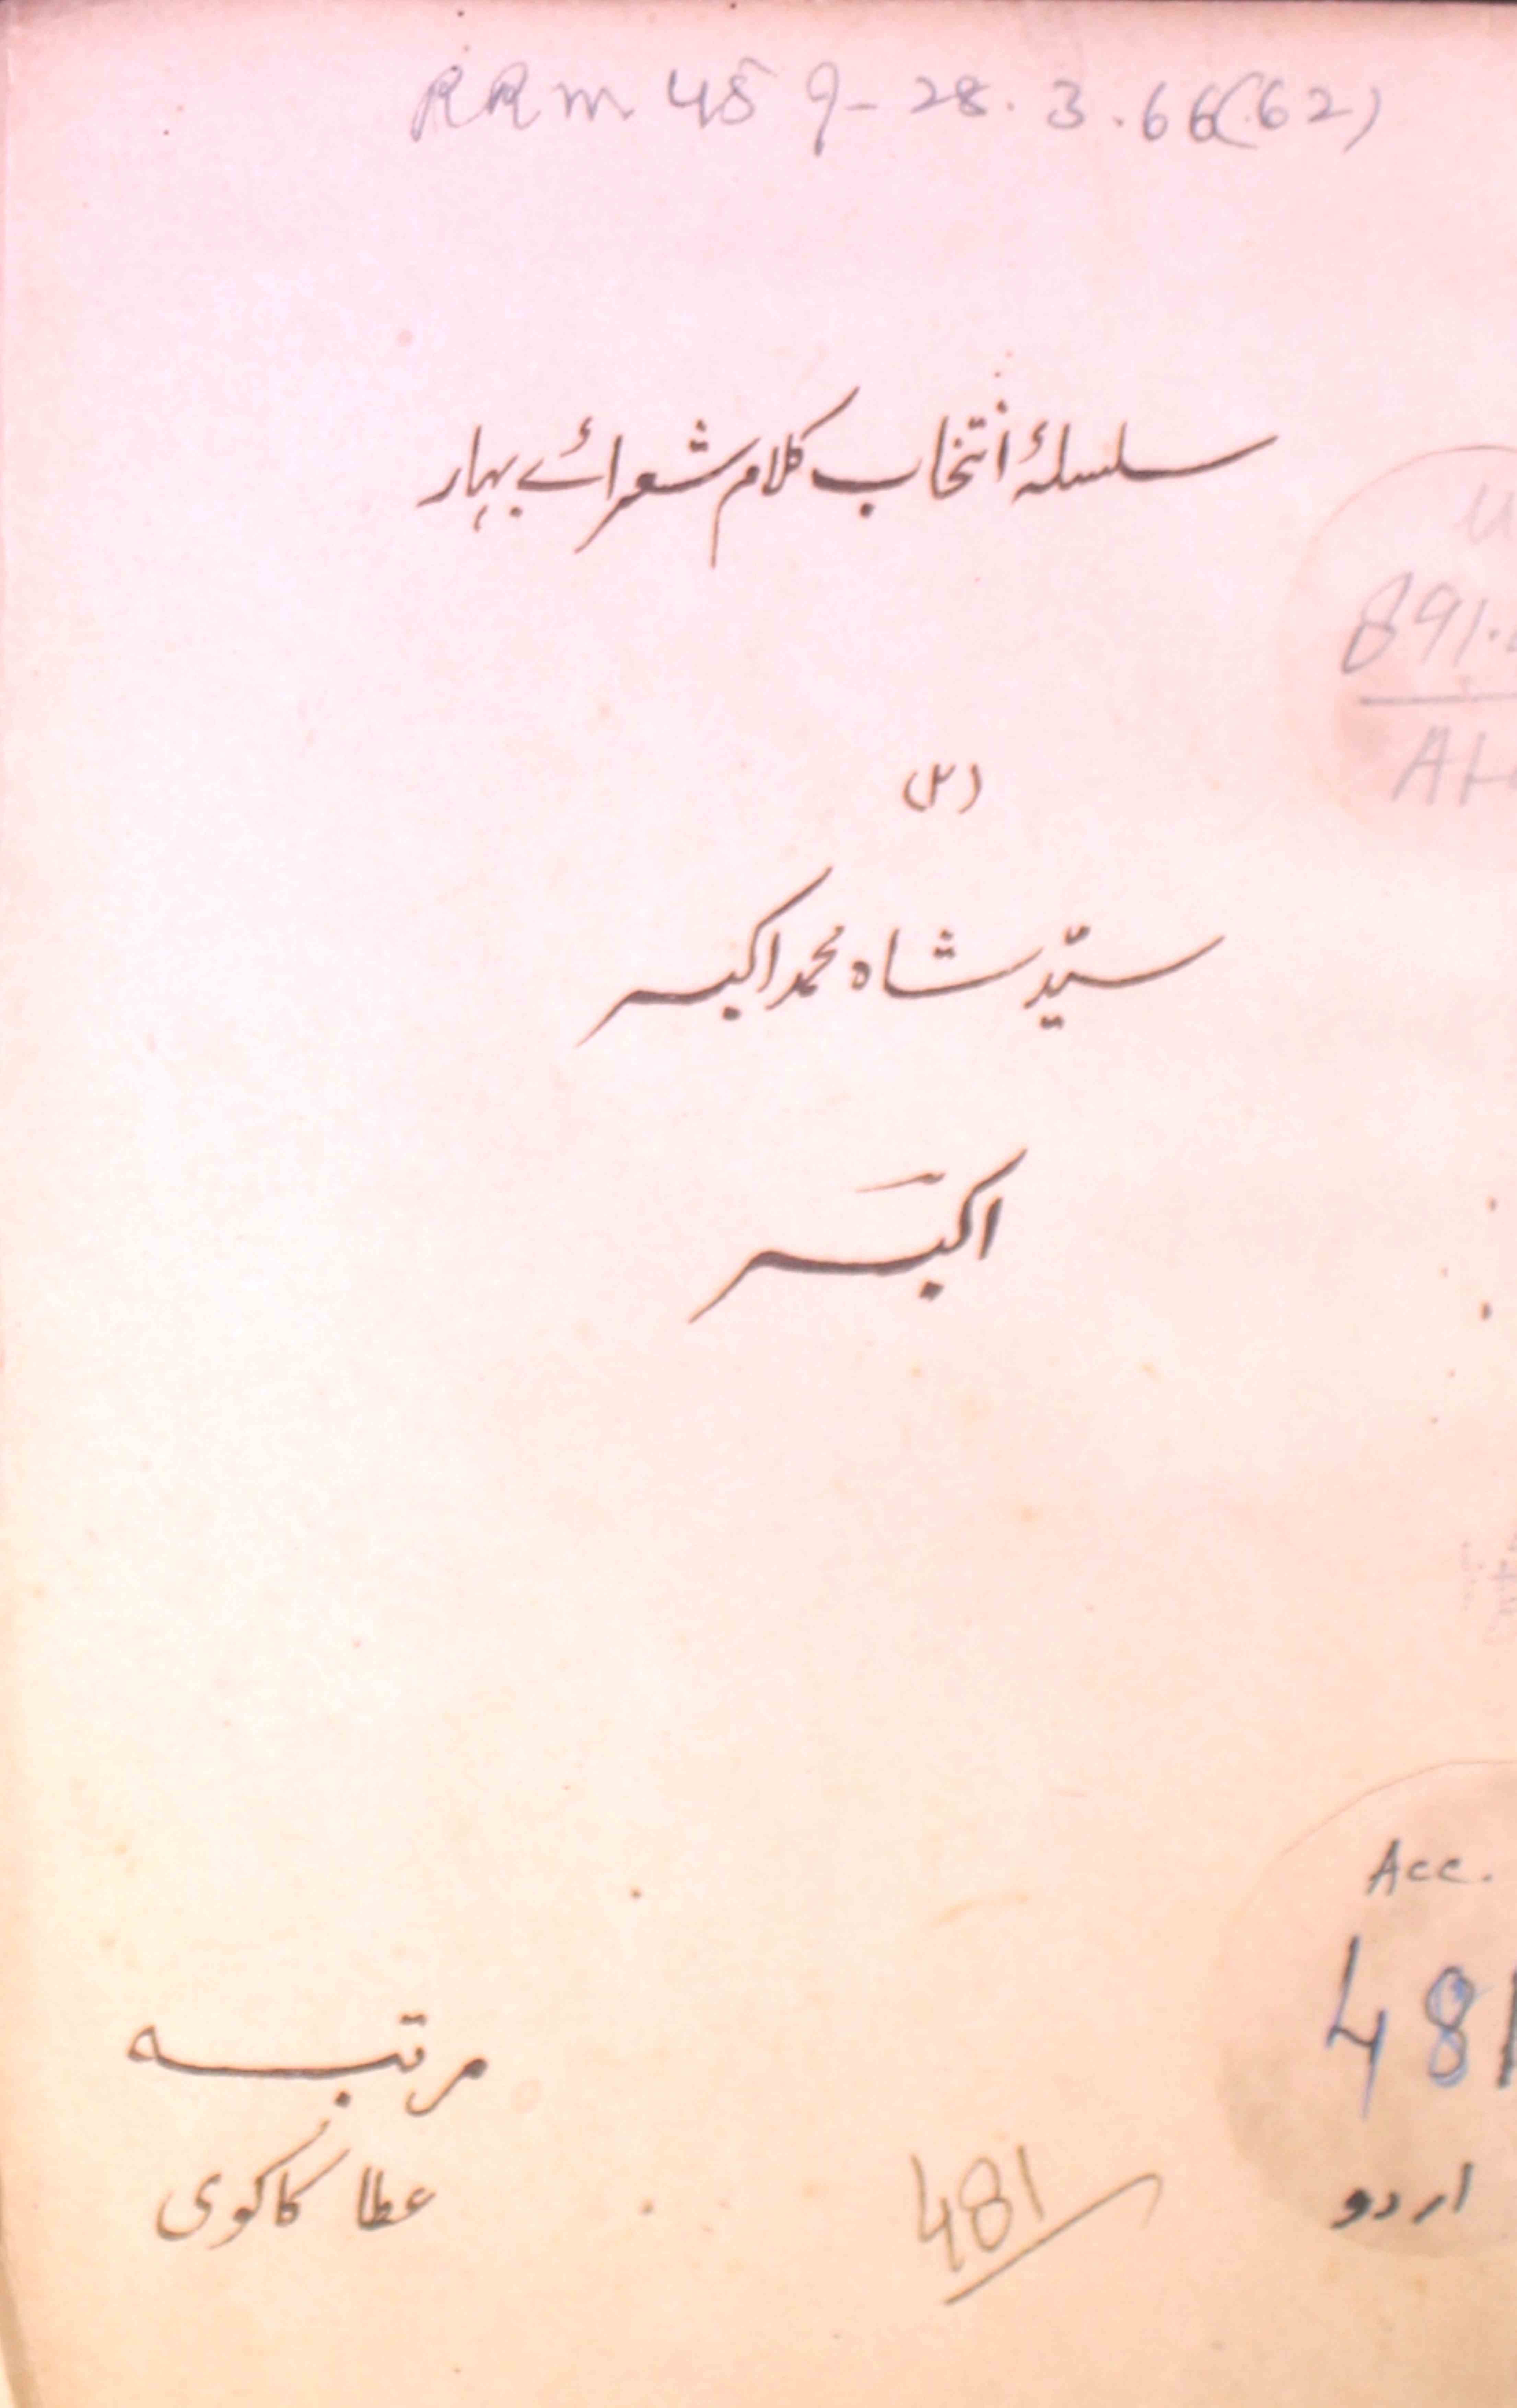 RRM 459-28.3.66(62)
سلسلۂ انتخاب کلام شعرائے بہار
891.
(۲)
سیّد شاہ محمد اکبر
اکبر
Acc.
481
مرتبہ
عطا کاکوی
481
اردو